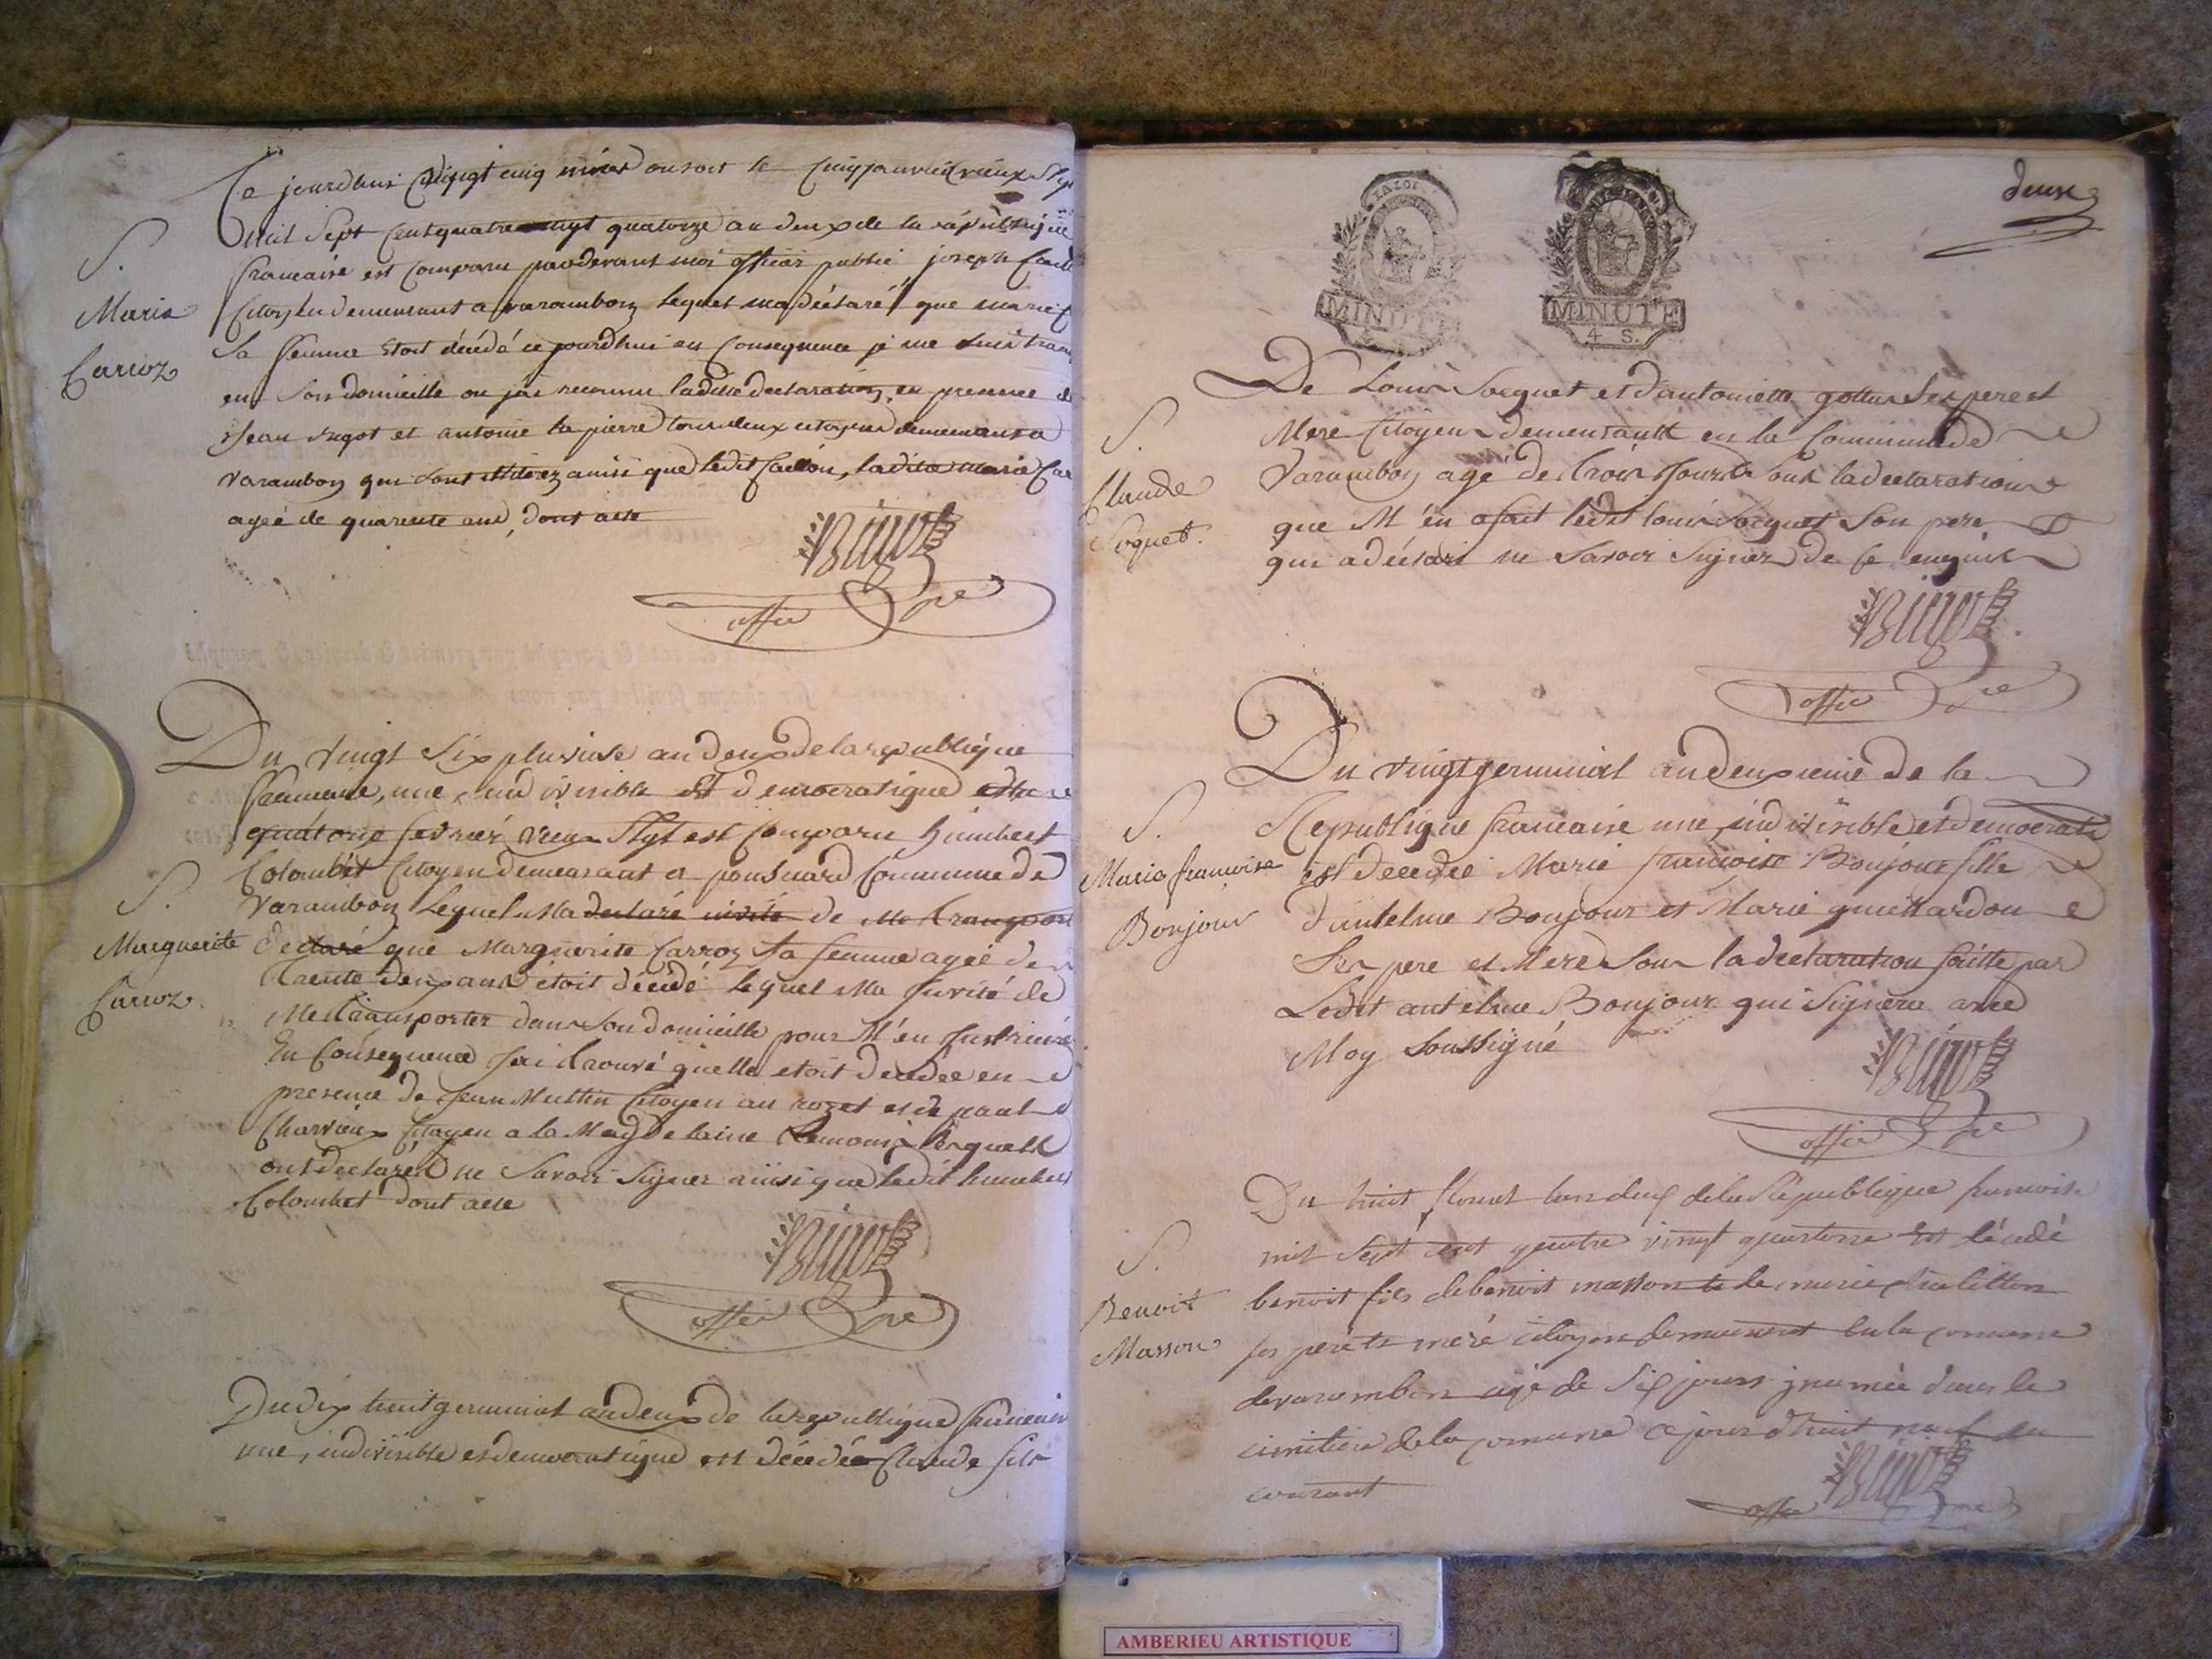 S.
Marie
Carroz
Ce jourdhui vingt cinq nivos ou soit le cinq janvier vieux Styl
Mil Sept cent quatre vingt quatorze an deux de la république
francaise est comparu pardevant moi officier public joseph
Citoyen demeurant a varambon lequel ma déclaré que marie
Sa femme etoit décédé ce jourdhui en Consequence je me suis
en Son domicille ou jai reconnu ladite declaration en presence de
Jean et antoine la pierre tous deux citoyens demeurant a
varambon qui sont ainsi que ledit, ladite marie
agée de quarente ans, dont acte
offie
S.
Marguerite
Carroz.
Du vingt Six pluviose an deux de la republique
francaise, une, indivisible et democratique
quatorze fevrier vieux Styl est comparu humbert
Colombet Citoyen demeurant a commune de
Varambon Lequel Ma declaré invité de Me transport
declaré que Marguerite Carroz sa femme agée de
trente deux ans étoit décédé lequel Ma invité de
Me transporter dans Son domicille pour M'en
En Consequence jai trouvé quelle etoit decedée en
presence de jean Citoyen au et de paul
Citoyen a la Magdelaine Lesquels
ont declaré ne Savoir Signer ainsi que ledit humbert
Colombet dont acte
offie
Du dix huit germinal an deux de la republique francaise
une, indivisible et democratique est décédée Claude fils
deux
MINUTE
MINUTE
4 S.
S.
Claude
Soquet.
De Louis Socquet et d'antoinette Ses pere et
Mere Citoyens demeurant en la Commune de
Varambon agé de trois Jours Sous la declaration
que M'en a fait ledit louis Socquet Son pere
qui a déclaré ne Savoir Signer de ce enquis
offie
S.
Marie francoise
Bonjour
Du vingt germinal an deuxieme de la
Republique francaise une, indivisible et democrati
est decedée Marie francoise Boujour fille
d'antelme Boujour et Marie
Ses pere et Mere Sous la declaration faitte par
Ledit antelme Boujour qui Signera avec
Moy Soussigné
offie
S.
Benoit
Masson
Du huit floreal lan deux de la République francoise
mil sept cent quatre vingt quatorze Est décédé
benoit fils de benoit masson et de marie
ses pere et mere citoyen demeurent en la comune
devarombon agé de Six jours inumée dans le
cimitiere de la comune ce jour d'huit neuf du
courant
offie
AMBERIEU ARTISTIQUE